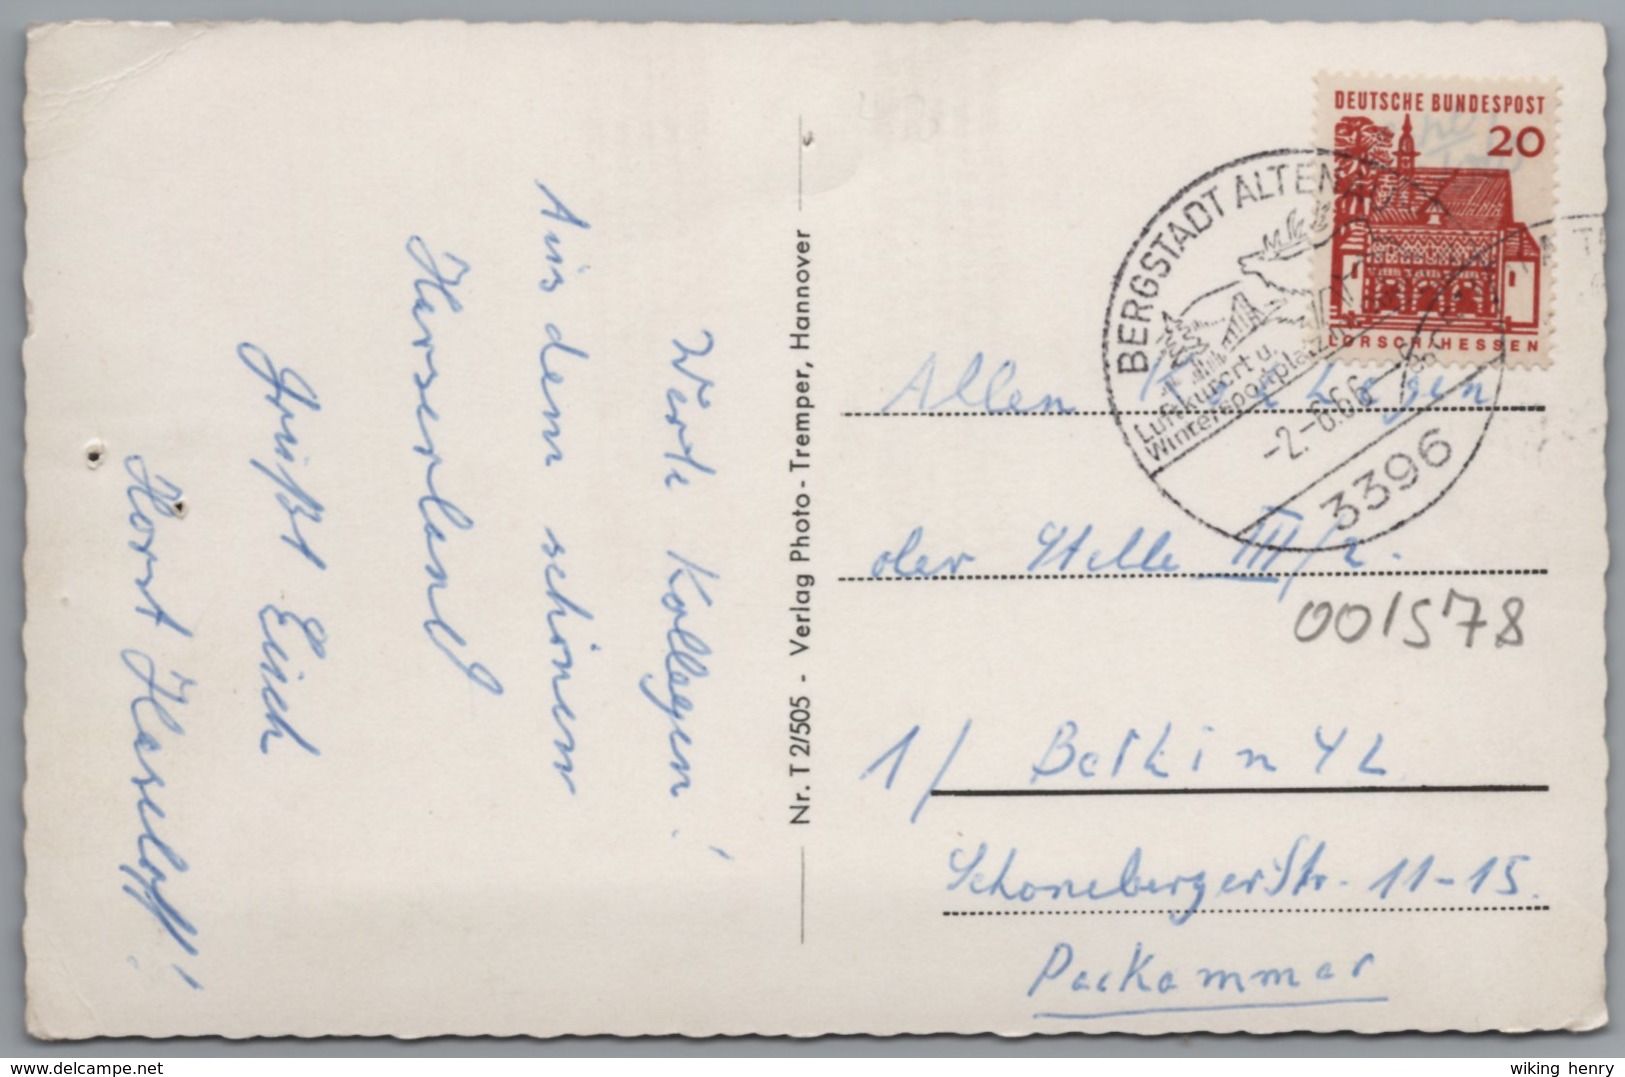 Werte Kollegen!
Aus dem schönen
Harzerland
Grüßt Euch
Horst Haseloff!
Nr. T 2/505 - Verlag Photo-Tremper, Hannover
DEUTSCHE BUNDESPOST
20
LORSCH/HESSEN
BERGSTADT ALTENAU
Luftkurort u.
Wintersportplatz
-2.-6.66
3396
Allen Kollegen
der Stelle III/2.
001578
1/ Berlin 42
Schöneberger Str. 11-15.
Packammer
www.delcampe.net
wiking henry